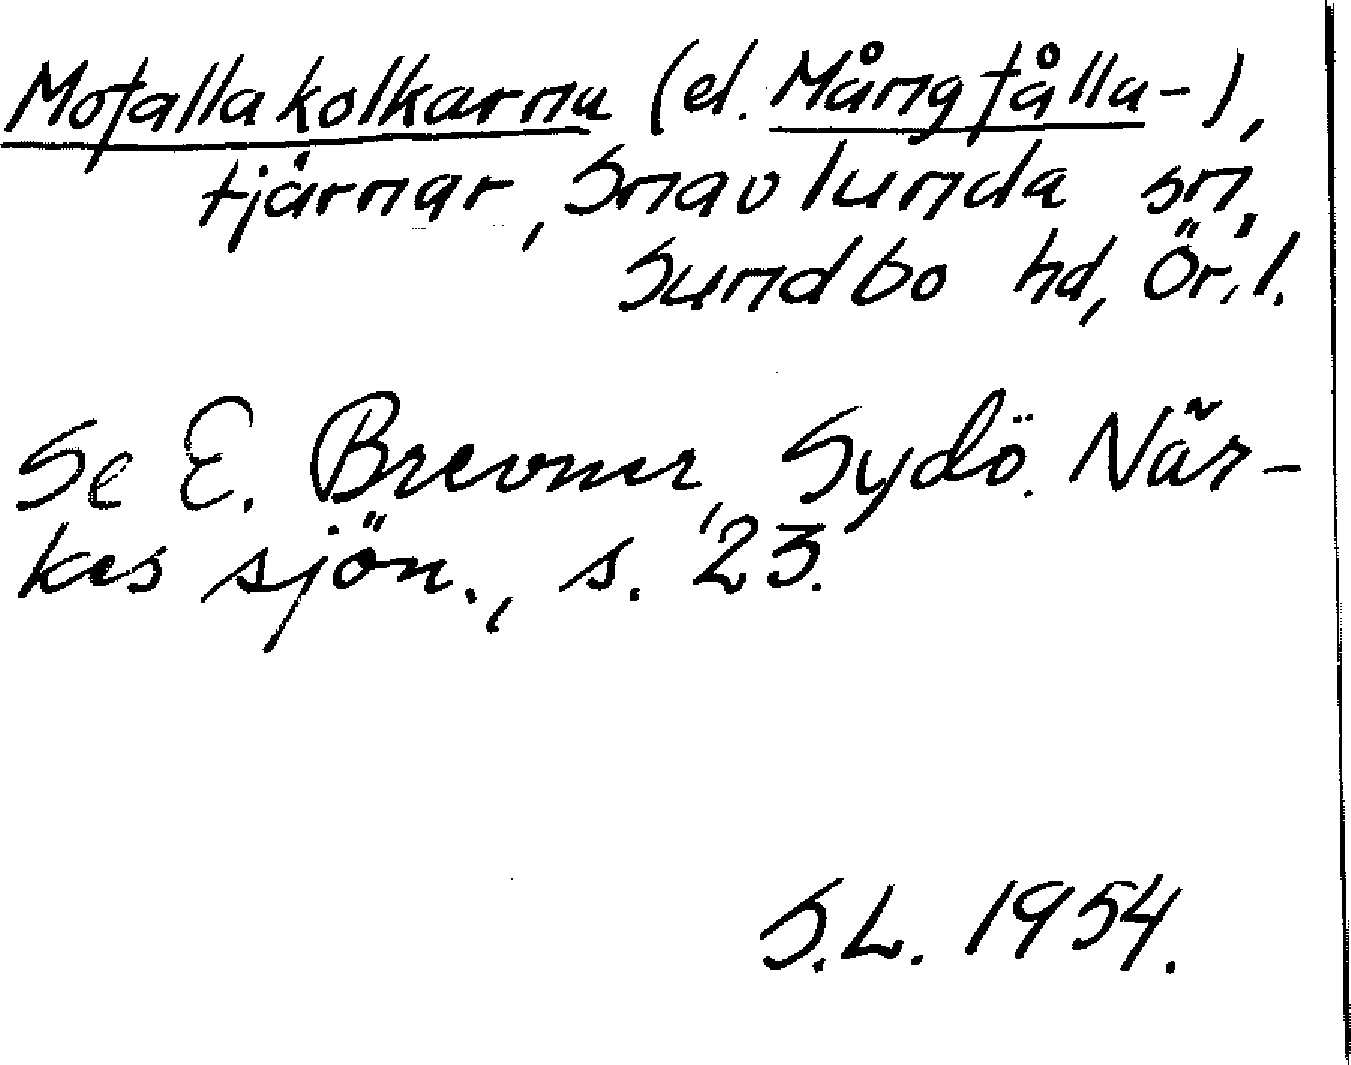 Mofallakolkarna (el. Mångfålla-),
tjärnar, Snavlunda sn,
Sundbo hd, Ör. l.
Se E. Brevner, Sydö. När-
kes sjön., s. 23.
S.L. 1954.